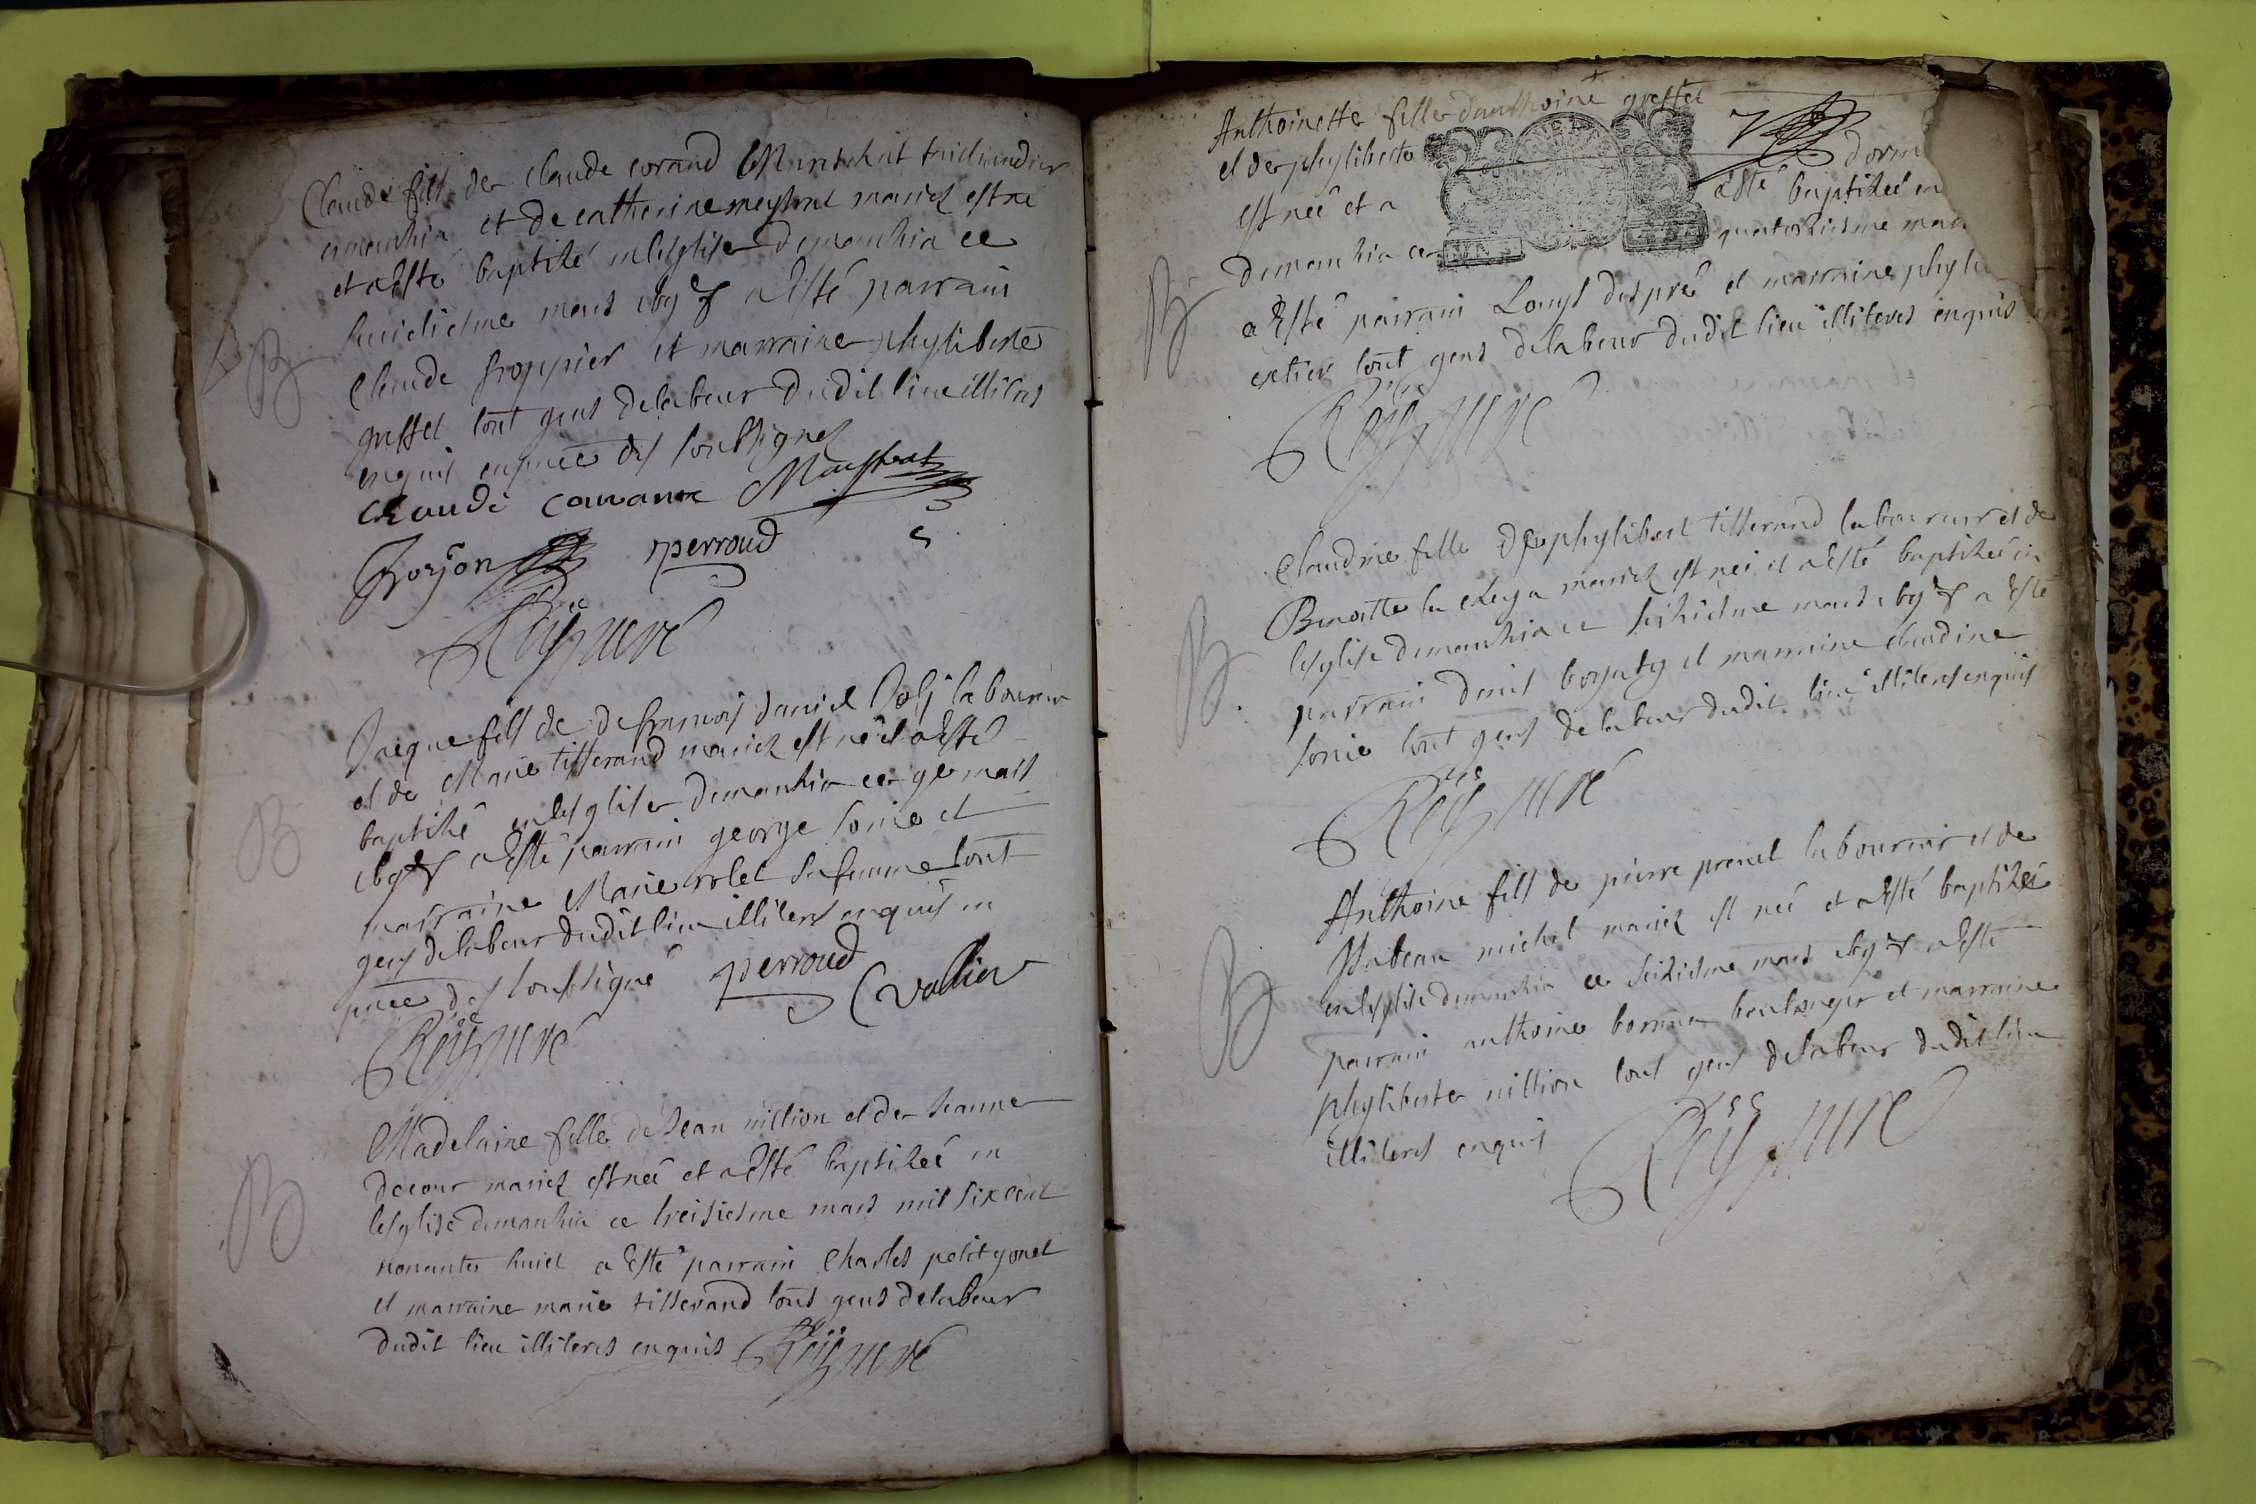 Claude fils de Claude corand Marechal taillandier
amanhia et de catherine meyhnet mariez est né
et a Esté baptizé en l'esglise demanhia ce
huictiesme mars 1698 a Esté parrain
Claude froppier et marraine phyliberte
gresset tout gens delabeur dudit lieu illiteres
enquis en pnce des soubsignez
Claude
perroud
Rey curé
B
Jacque fils de defrancois daniel Joly laboureur
et de Marie tisserand mariez est né et a Esté
baptizé en lesglise demanhia ce 9e mars
1698 a Esté parrain george sonie et
marraine Marie rolet sa femme tout
gens delabeur dudit lieu illiteres enquis en
pnce des soubsigné perroud vallier
Rey curé
B
Madelaine fille de Jean million et de Jeanne
decour mariez est neé et a Esté baptizeé en
lesglise demanhia ce treiziesme mars mil six cent
nonante huict a Esté parrain Charles petitjonet
et marraine marie tisserand tout gens delabeur
dudit lieu illiteres enquis Rey curé
B
Anthoinette fille danthoine gresset
et de phyliberte
est neé et a Esté baptizeé en
demanhia ce quatorziesme mars
a Esté parrain Louys despré et marraine
tout gens delabeur dudit lieu illiteres enquis
Rey curé
B
Claudine fille de phylibert tisserand laboureur et de
Benoitte mariez est neé et a Esté baptizeé en
lesglise demanhia ce seiziesme mars 1698 a Esté
parrain denis et marraine claudine
sonie tout gens delabeur dudit lieu illiteres enquis
Rey curé
B
Anthoine fils de pierre prenel laboureur et de
Ysabeau michel mariez est neé et a Esté baptizeé
en lesglise demanhia ce seiziesme mars 1698 a Esté
parrain anthoine boulanger et marraine
phyliberte million tout gens delabeur dudit lieu
illiteres enquis Rey curé
B